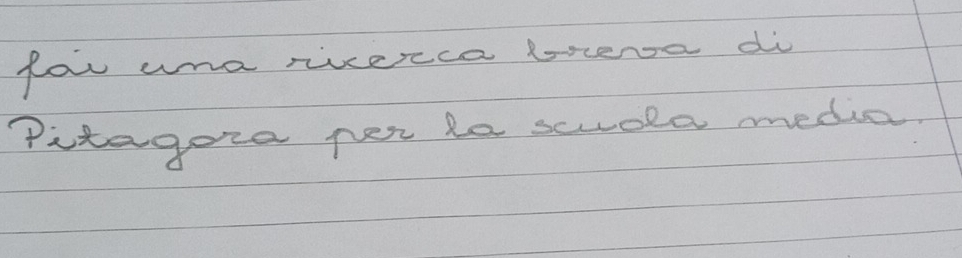 fai una ricerca breva di
Pitagora per la scuola media.